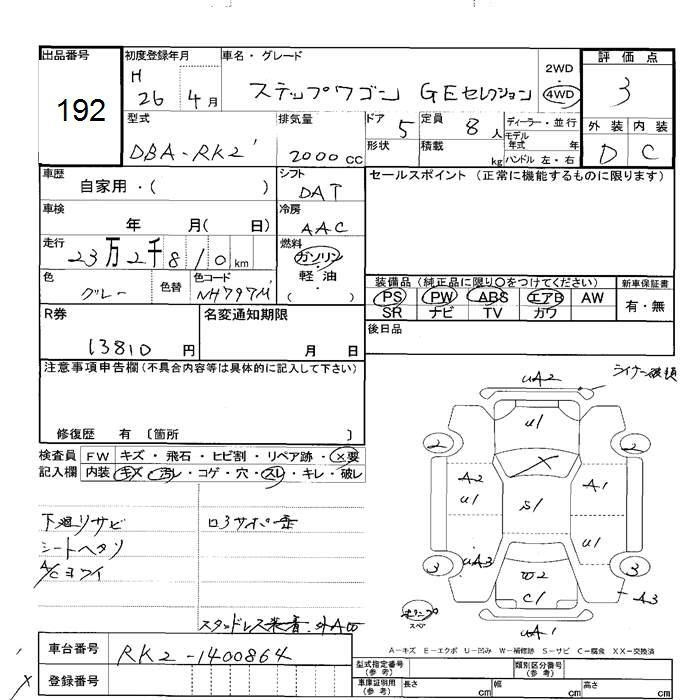 出品番号 初度登録年月 車名・グレード 2WD 評価点
192 H 26 4月 ステップワゴン GEセレクション 4WD 3
型式 排気量 ドア 定員 ディーラー・並行 外装 内装
DBA-RK2 2000 CC 5 8人 モデル年式 年 D C
形状 積載 kg ハンドル 左・右
車歴 シフト セールスポイント (正常に機能するものに限ります)
自家用・( ) DAT
車検 冷房
年 月( 日) AAC
走行 燃料
23万2千810km ガソリン
軽油
( )
色 色替 色コード 装備品 (純正品に限り○をつけてください) 新車保証書
グレー NH797M PS PW ABS エアB AW 有・無
SR ナビ TV カワ
R券 名変通知期限 後日品
13810 円 月 日
注意事項申告欄 (不具合内容等は具体的に記入して下さい)
修復歴 有 〔箇所 〕
検査員 FW キズ・飛石・ヒビ割・リペア跡・×要
記入欄 内装 キズ・汚レ・コゲ・穴・スレ・キレ・破レ
下廻リサビ
シートヘタリ
A/Cヨワイ
スタッドレス装着
uA2
ライナー破損
u1
2 2
A2 A1
u1 S1
uA3 u1
3 W2 3
C1
A3
uA1
スペア
A-キズ E-エクボ U-凹み W-補修跡 S-サビ C-腐食 XX-交換済
車台番号 RK2-1400864
登録番号
型式指定番号 (参考) 類別区分番号 (参考)
車庫証明用 (参考) 長さ cm 幅 cm 高さ cm